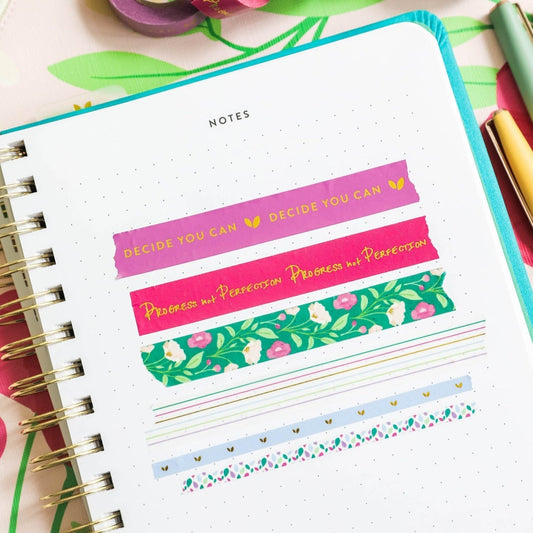 NOTES
DECIDE YOU CAN DECIDE YOU CAN
PROGRESS not PERFECTION PROGRESS not PERFECTION